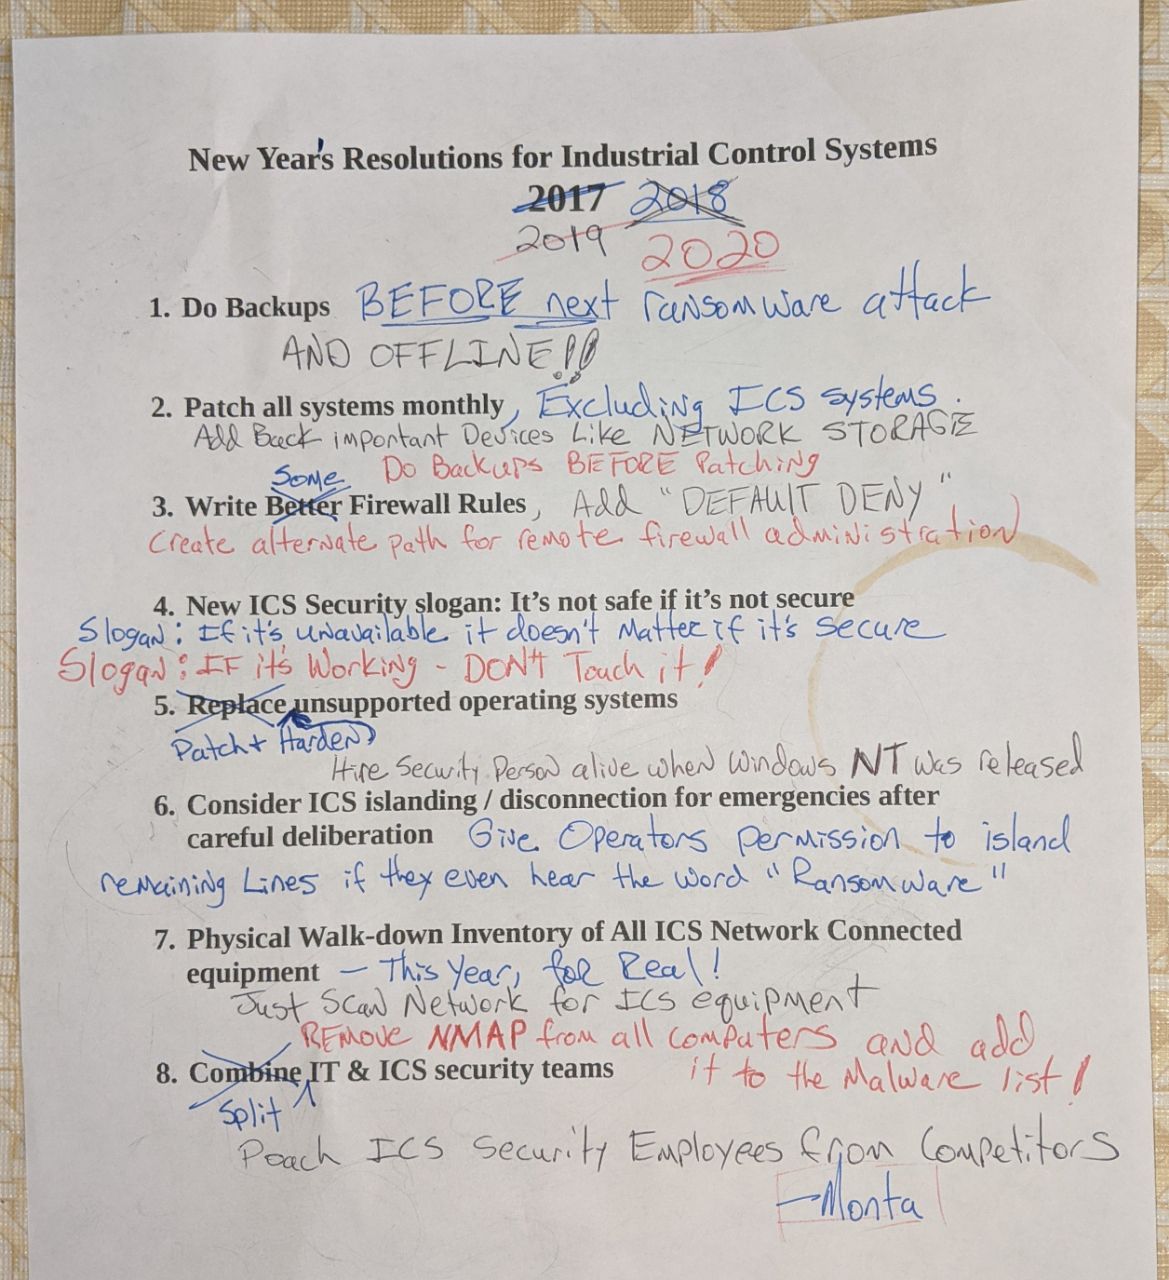 New Year's Resolutions for Industrial Control Systems
2017 2018
2019 2020
1. Do Backups BEFORE next ransomware attack
AND OFFLINE!!
2. Patch all systems monthly, Excluding ICS systems.
Add Back important Devices Like NETWORK STORAGE
Do Backups BEFORE Patching
Some
3. Write Better Firewall Rules, Add "DEFAULT DENY"
Create alternate path for remote firewall administration
4. New ICS Security slogan: It's not safe if it's not secure
Slogan: If it's unavailable it doesn't Matter if it's Secure
Slogan: IF it's Working - DON't Touch it!
5. Replace unsupported operating systems
Patch + Harden
Hire Security Person alive when Windows NT was released
6. Consider ICS islanding / disconnection for emergencies after
careful deliberation Give Operators permission to island
remaining Lines if they even hear the word "Ransomware"
7. Physical Walk-down Inventory of All ICS Network Connected
equipment - This Year, for Real!
Just Scan Network for ICS equipment
REMOVE NMAP from all computers and add
8. Combine IT & ICS security teams it to the Malware list!
Split
Poach ICS Security Employees from Competitors
-Monta